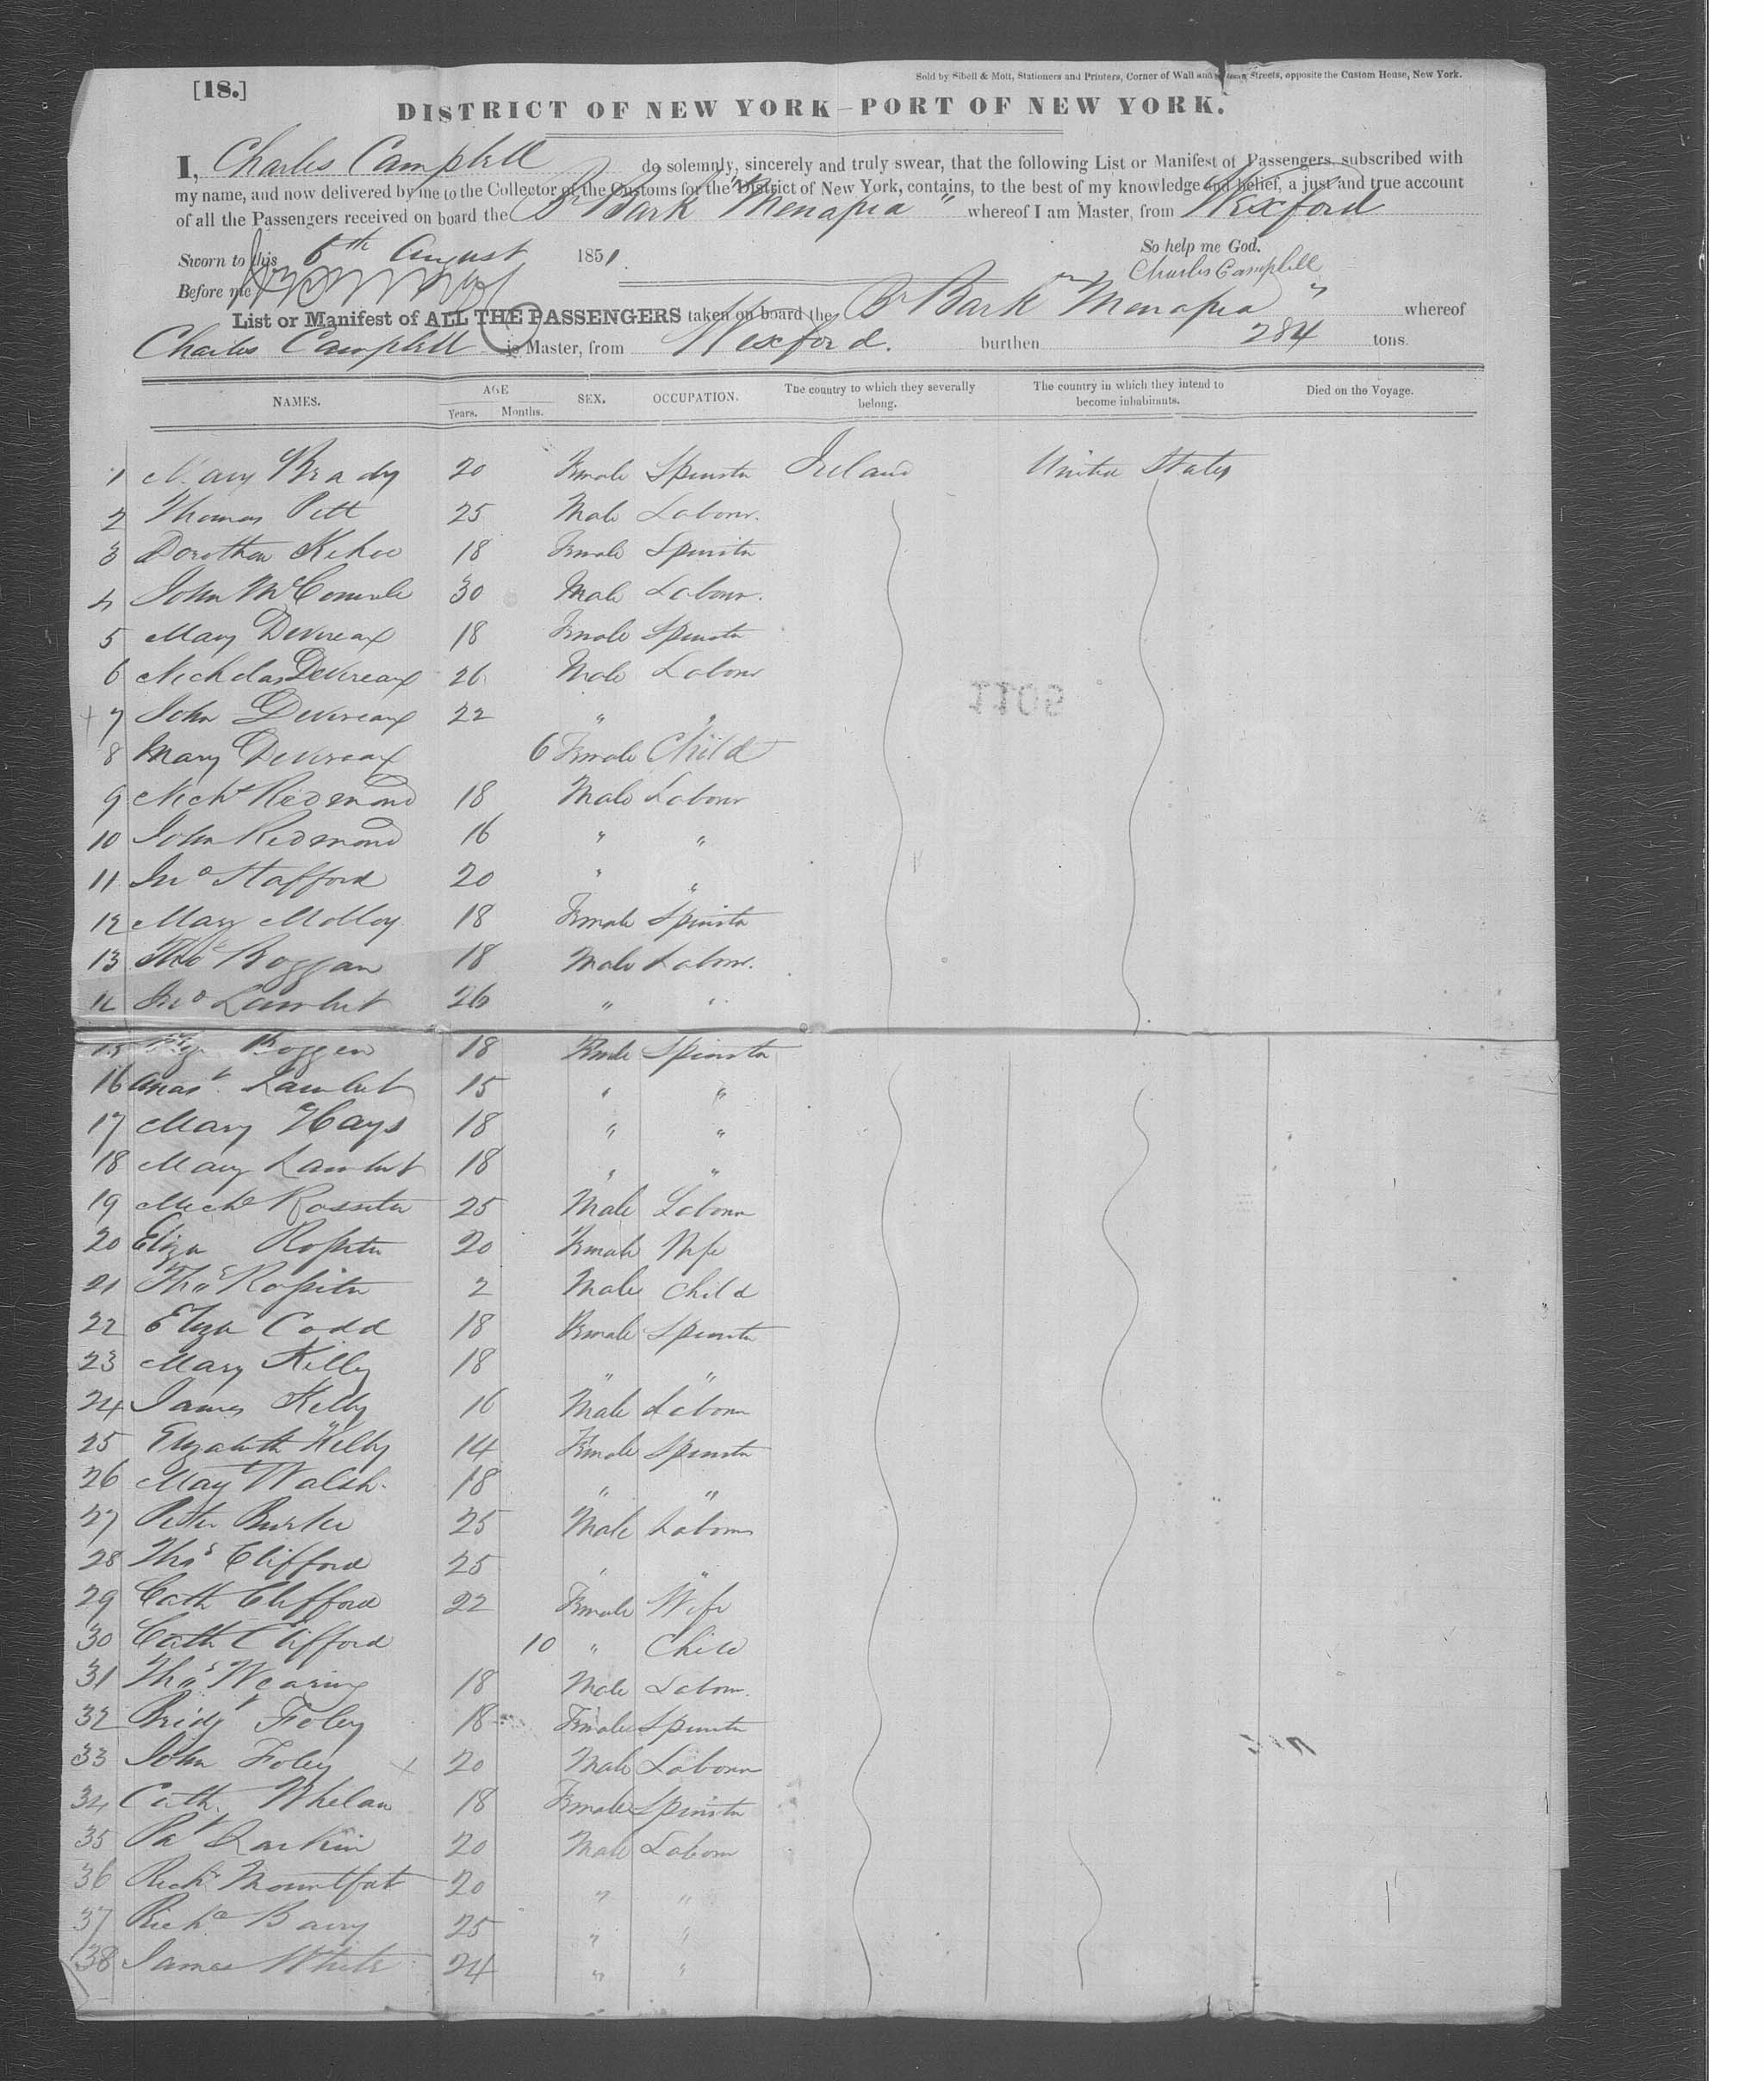 [18.]
Sold by Sibell & Mott, Stationers and Printers, Corner of Wall and Streets, opposite the Custom House, New York.
DISTRICT OF NEW YORK—PORT OF NEW YORK.
I, Charles Campbell do solemnly, sincerely and truly swear, that the following List or Manifest of Passengers, subscribed with
my name, and now delivered by me to the Collector of the Customs for the District of New York, contains, to the best of my knowledge and belief, a just and true account
of all the Passengers received on board the Br Bark "Menapia" whereof I am Master, from Wexford
So help me God.
Sworn to this 6th August 1851.
Charles Campbell
Before me
List or Manifest of ALL THE PASSENGERS taken on board the Br Bark "Menapia" whereof
Charles Campbell is Master, from Wexford. burthen 284 tons.
NAMES. AGE Years. Months. SEX. OCCUPATION. The country to which they severally belong. The country in which they intend to become inhabitants. Died on the Voyage.
1 Mary Brady 20 Female Spinster Ireland United States
2 Thomas Pitt 25 Male Labour.
3 Dorothea Kehoe 18 Female Spinster
4 John 30 Male Labour.
5 Mary Devereax 18 Female Spinster
6 Nicholas Devereaux 26 Male Labour
7 John Devereaux 22 " "
8 Mary Devereaux 6 Female Child
9 Nichs Redmond 18 Male Labour
10 John Redmond 16 " "
11 Jno Stafford 20 " "
12 Mary Molloy 18 Female Spinster
13 Thos Roggan 18 Male Labour.
14 Jno Lambert 26 " "
15 Roggan 18 Female Spinster
16 Anast Lambert 15 " "
17 Mary Hays 18 " "
18 Mary Lambert 18 " "
19 Michl Rossiter 25 Male Labour
20 Eliza Rossiter 20 Female Wife
21 Thos Rossiter 2 Male Child
22 Eliza Codd 18 Female Spinster
23 Mary Kelly 18 " "
24 James Kelly 16 Male Labour
25 Elizabeth Kelly 14 Female Spinster
26 Mary Walsh. 18 " "
27 Peter Burke 25 Male Labour
28 Thos Clifford 25 " "
29 Cath Clifford 22 Female Wife
30 Cath Clifford 10 " Child
31 Thos Wearing 18 Male Labour.
32 Bridt Foley 18 Female Spinster
33 John Foley 20 Male Labour
34 Cath. Whelan 18 Female Spinster
35 Pat Larkin 20 Male Labour
36 Richd 20 " "
37 Richd Barry 25 " "
38 James White 24 " "